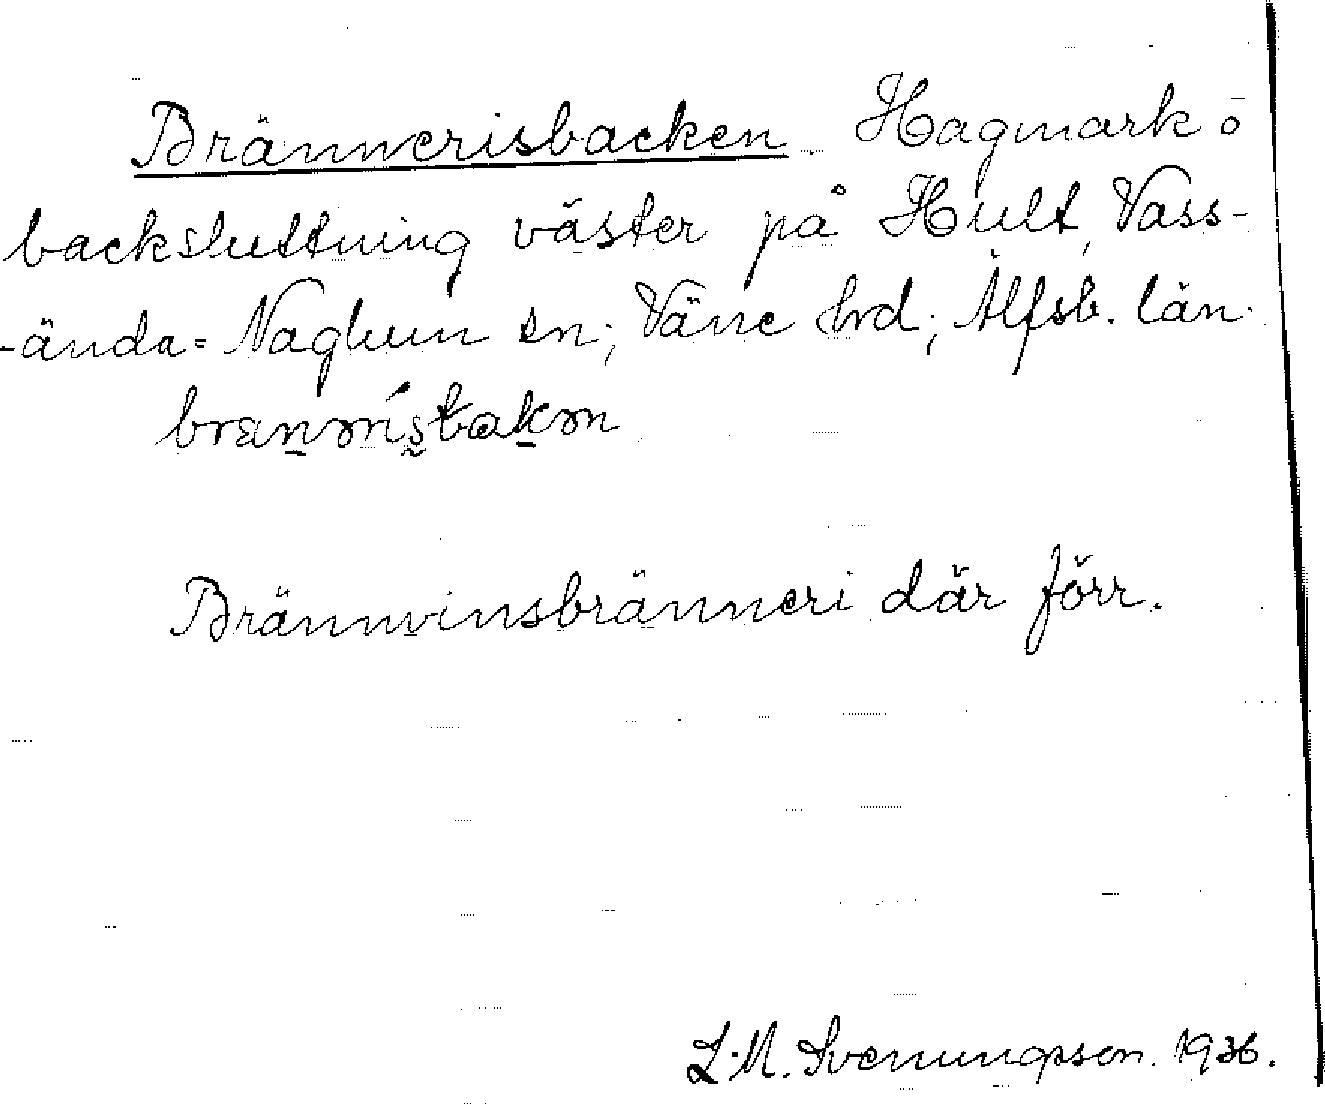 Brännerisbacken. Hagmark o
backsluttning väster på Hult, Vass-
-ända-Naglum sn; Väne hrd; Älfsb. län.
Brännvinsbränneri där förr.
L.M. Svenungsson. 1936.